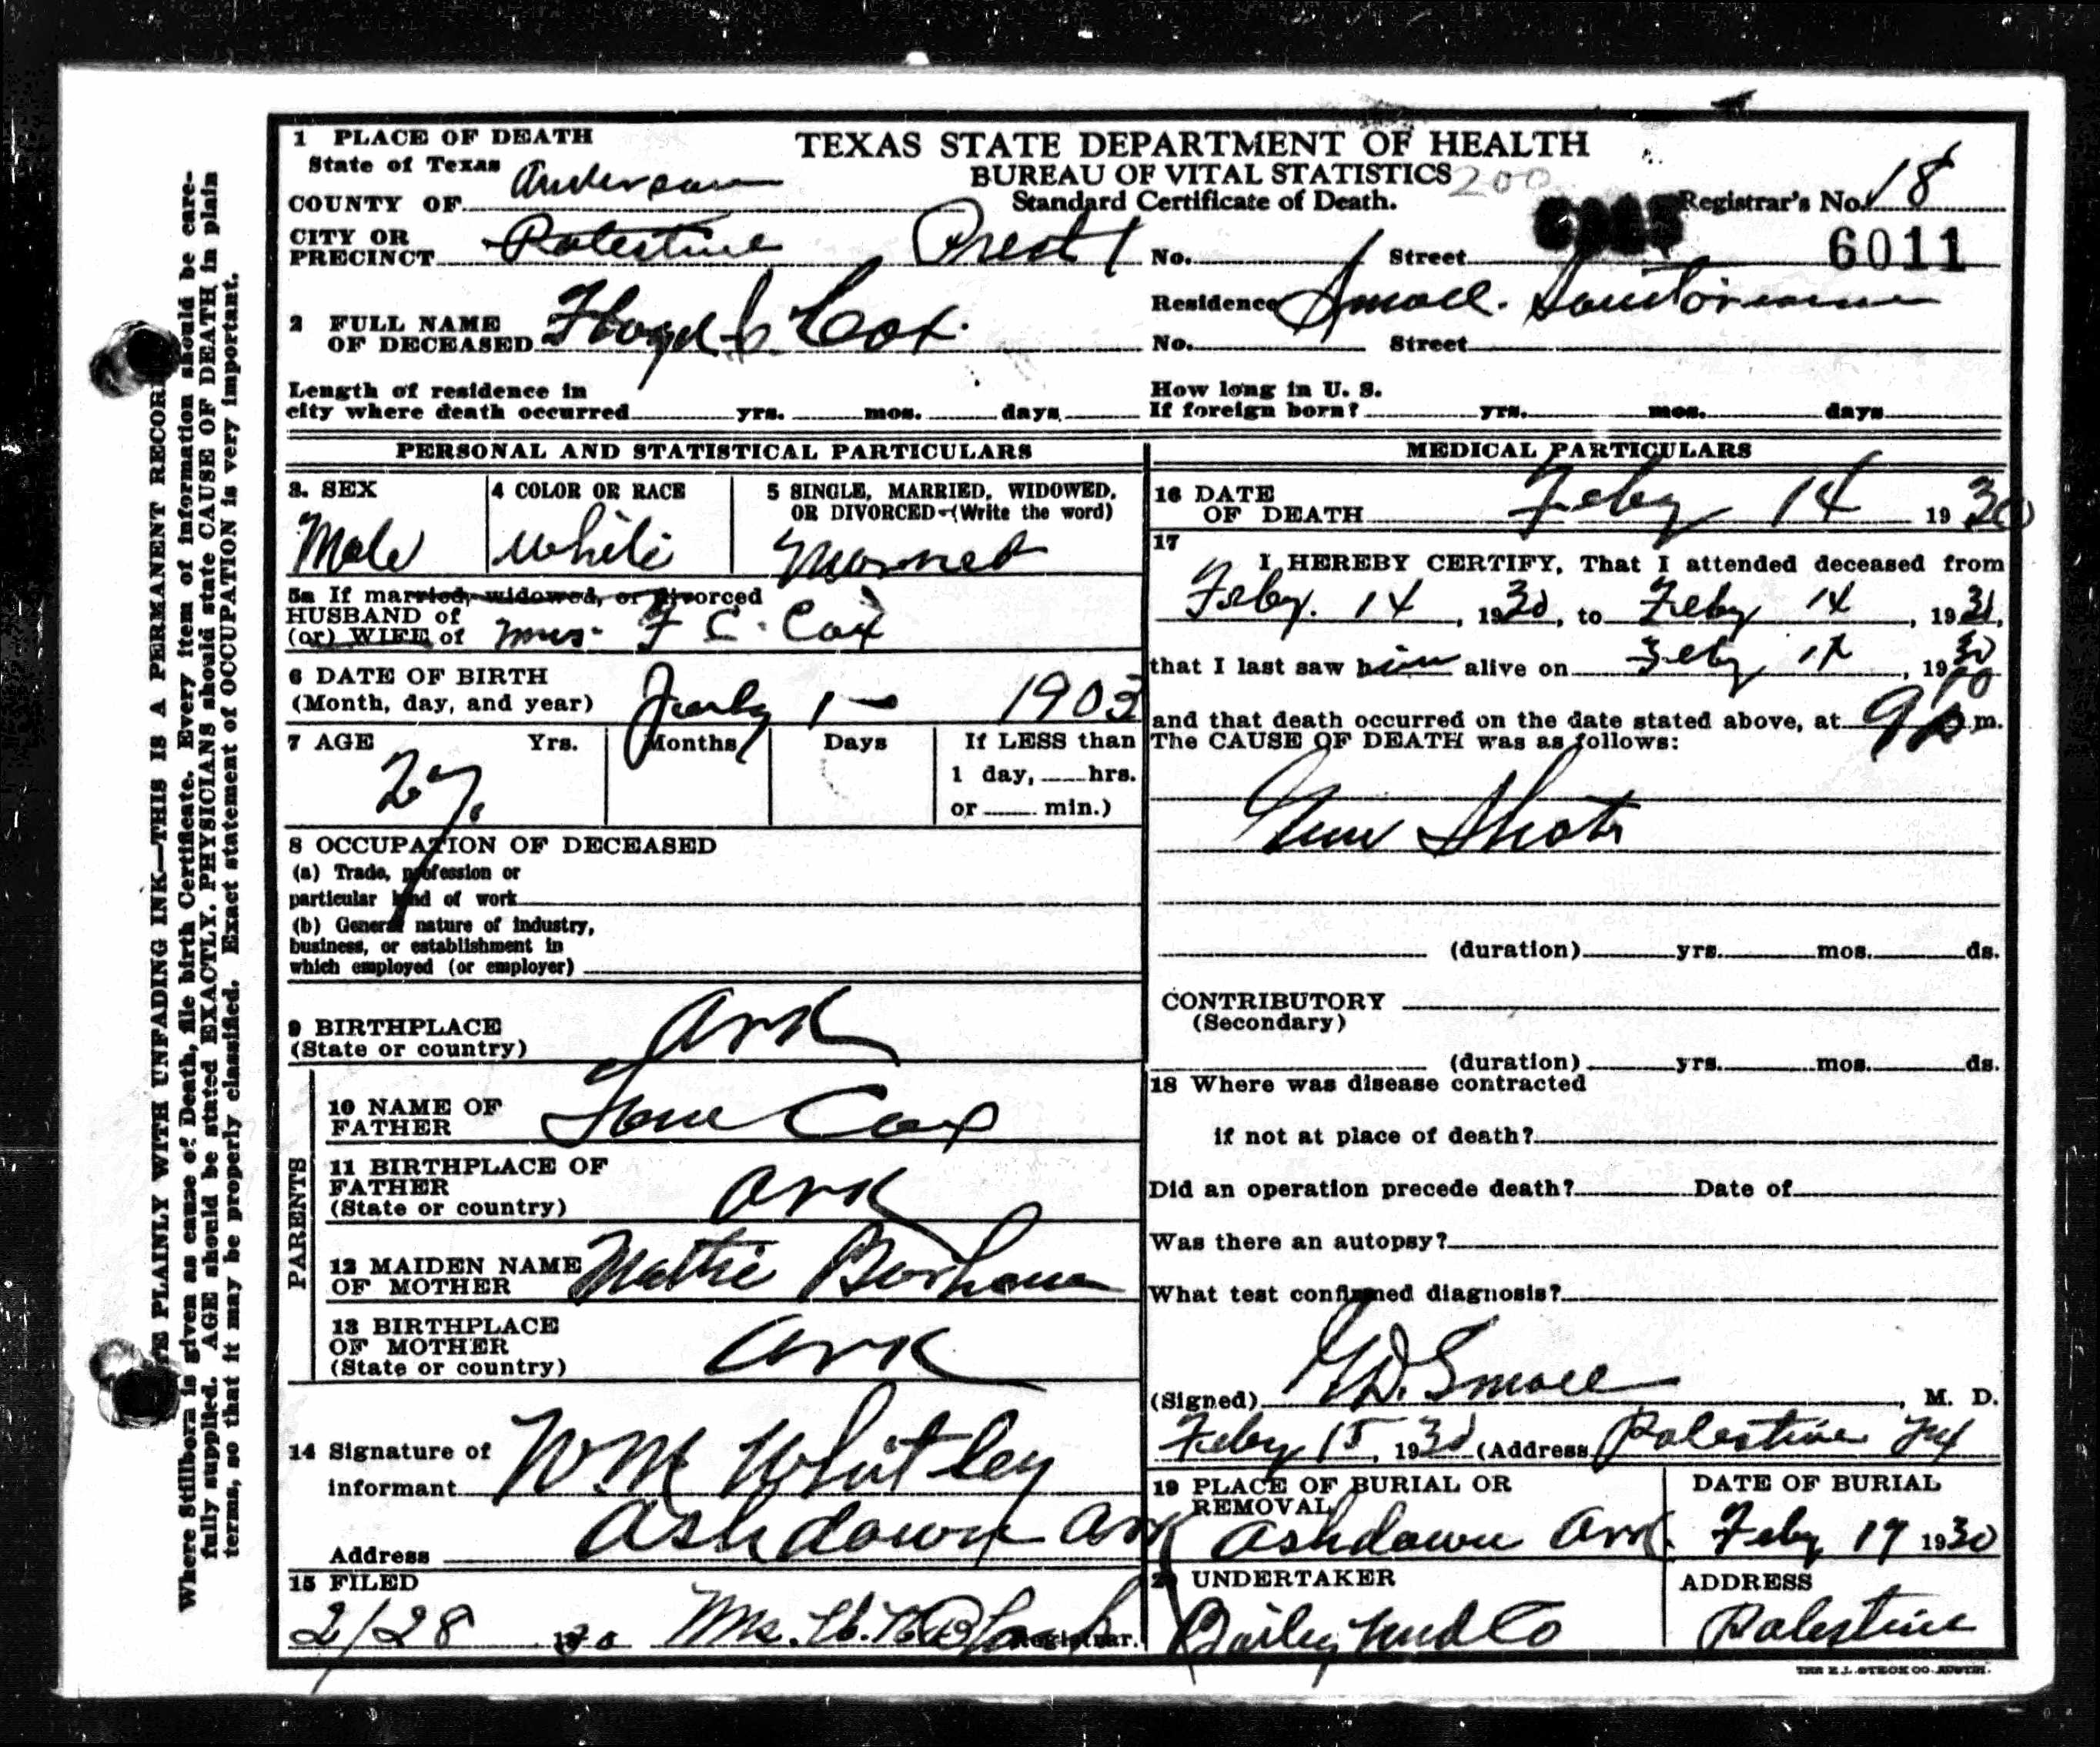 TEXAS STATE DEPARTMENT OF HEALTH
BUREAU OF VITAL STATISTICS 200
Standard Certificate of Death.
Registrar's No. 18
6011
1 PLACE OF DEATH
State of Texas
COUNTY OF Anderson
CITY OR
PRECINCT Palestine Prect 1 No. Street
2 FULL NAME
OF DECEASED Floyd C. Cox.
Residence Small. Sanitorium
No. Street
Length of residence in
city where death occurred yrs. mos. days
How long in U. S.
If foreign born? yrs. mos. days
PERSONAL AND STATISTICAL PARTICULARS
3. SEX
Male
4 COLOR OR RACE
White
5 SINGLE, MARRIED, WIDOWED,
OR DIVORCED—(Write the word)
Married
5a If married, widowed, or divorced
HUSBAND of
(or) WIFE of Mrs. F C. Cox
6 DATE OF BIRTH
(Month, day, and year) July 1 — 1903
7 AGE Yrs. Months Days If LESS than
27. 1 day, hrs.
or min.)
8 OCCUPATION OF DECEASED
(a) Trade, profession or
particular kind of work
(b) General nature of industry,
business, or establishment in
which employed (or employer)
9 BIRTHPLACE
(State or country) Ark
PARENTS
10 NAME OF
FATHER Tom Cox
11 BIRTHPLACE OF
FATHER
(State or country) Ark
12 MAIDEN NAME
OF MOTHER Mattie Burham
13 BIRTHPLACE
OF MOTHER
(State or country) Ark
14 Signature of
informant W.M Whitley
Address Ashdown Ark
15 FILED
2/28 1930 Mrs. Registrar.
MEDICAL PARTICULARS
16 DATE
OF DEATH Feby 14 1930
17
I HEREBY CERTIFY, That I attended deceased from
Feby. 14, 1930, to Feby 14, 1930,
that I last saw him alive on Feby 14, 1930
and that death occurred on the date stated above, at 9 00 p m.
The CAUSE OF DEATH was as follows:
Gun Shots
(duration) yrs. mos. ds.
CONTRIBUTORY
(Secondary)
(duration) yrs. mos. ds.
18 Where was disease contracted
if not at place of death?
Did an operation precede death? Date of
Was there an autopsy?
What test confirmed diagnosis?
(Signed) Small, M. D.
Feby 15, 1930 (Address Palestine Tex
19 PLACE OF BURIAL OR
REMOVAL
Ashdown Ark.
DATE OF BURIAL
Feby 17 1930
20 UNDERTAKER
Bailey Und Co
ADDRESS
Palestine
THE E.L. STECK CO. AUSTIN.
WRITE PLAINLY WITH UNFADING INK—THIS IS A PERMANENT RECORD
Where Stillborn is given as cause of Death, file birth Certificate. Every item of information should be care-
fully supplied. AGE should be stated EXACTLY. PHYSICIANS should state CAUSE OF DEATH in plain
terms, so that it may be properly classified. Exact statement of OCCUPATION is very important.